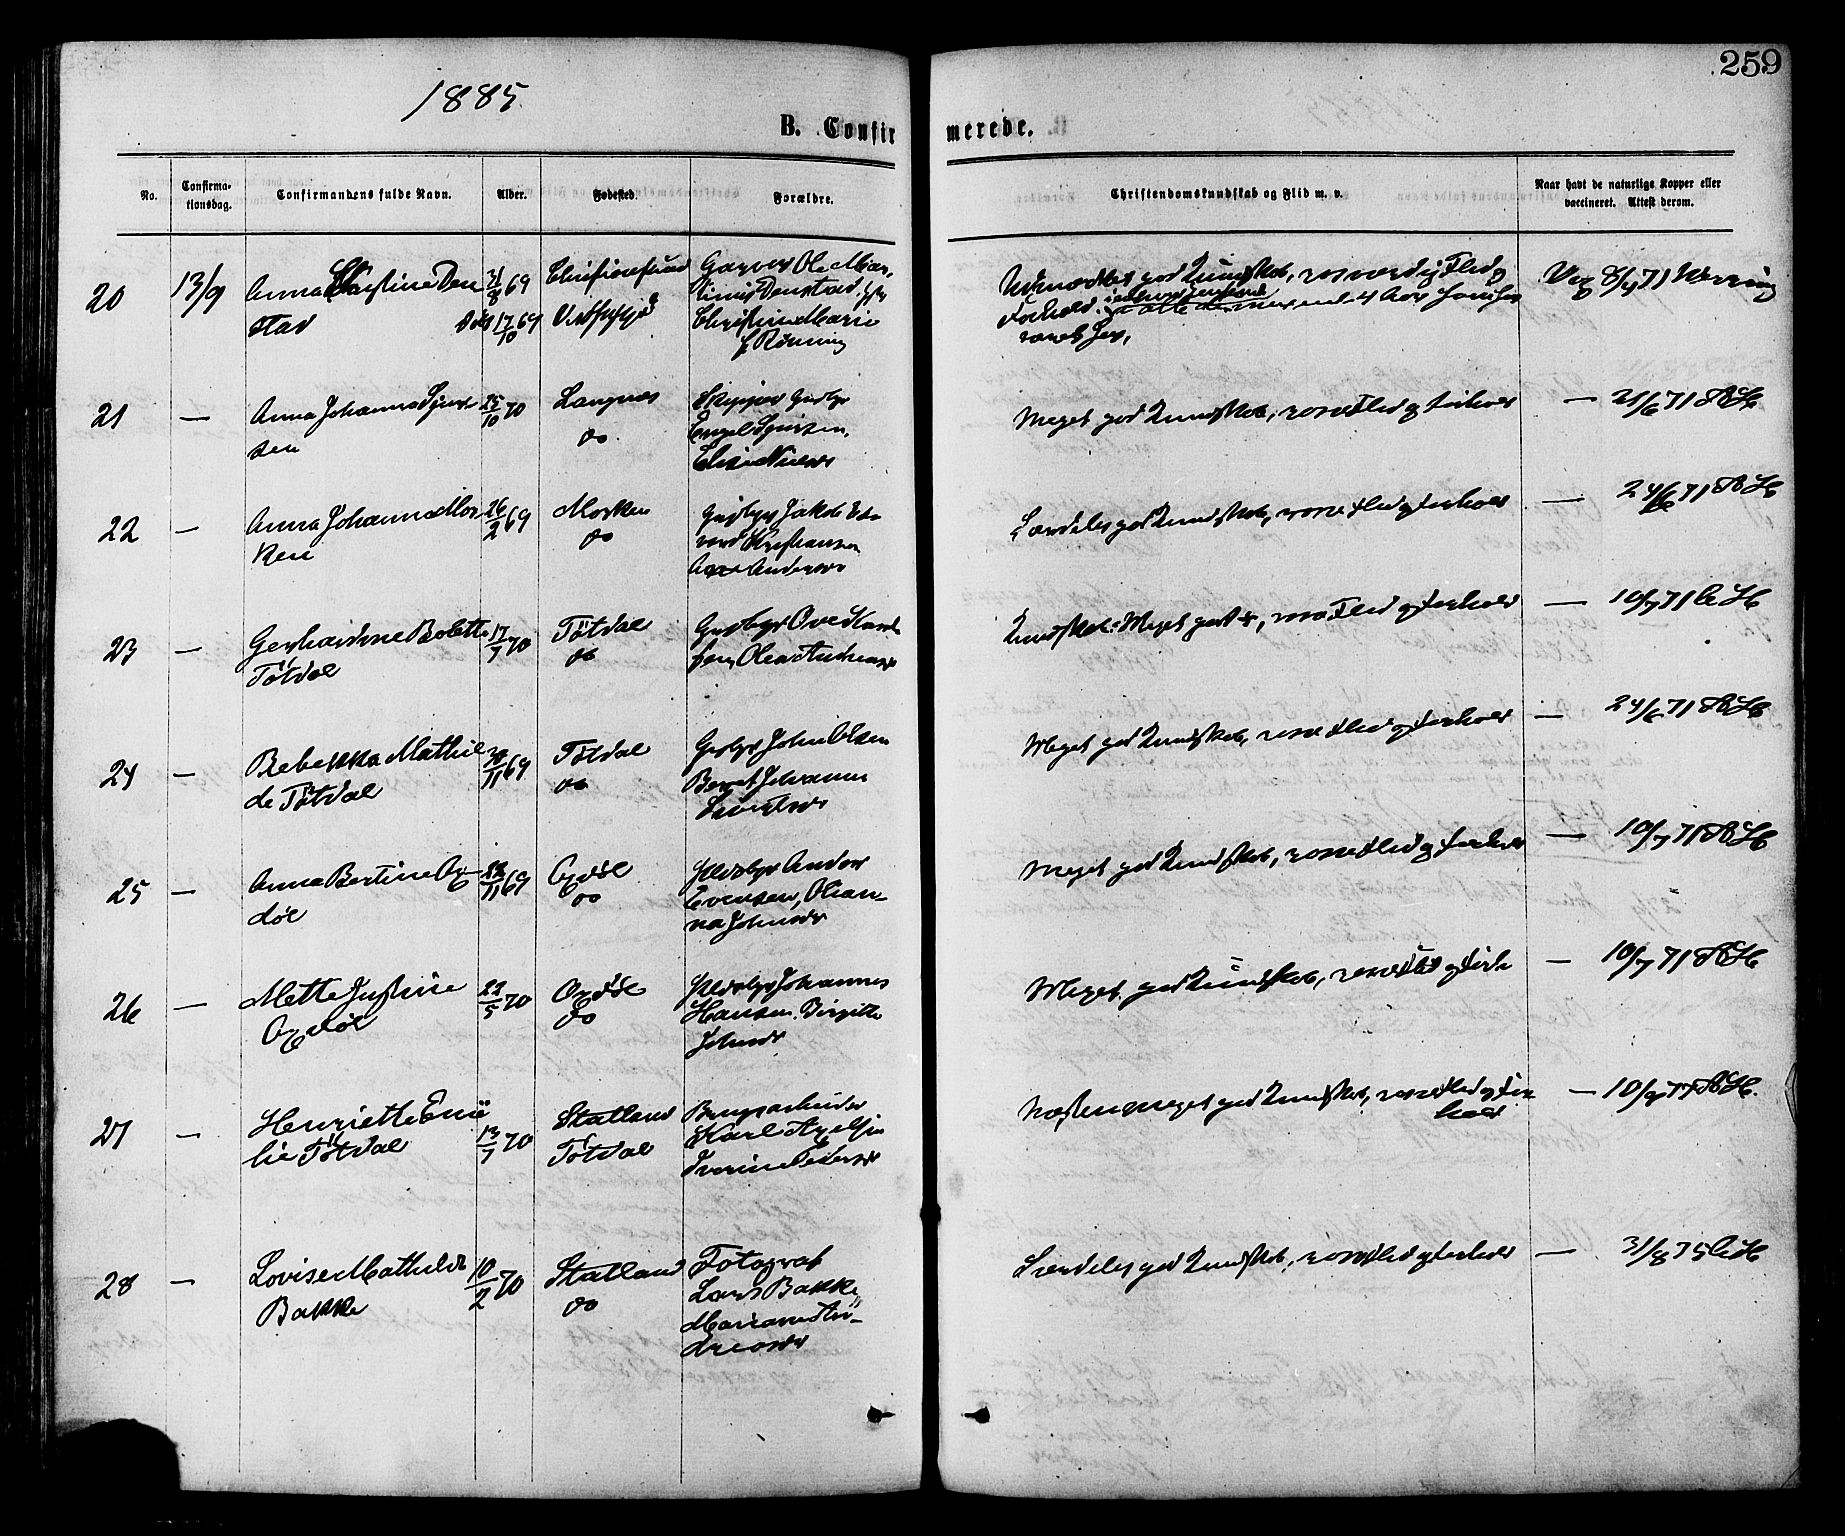 259
1885.
B. Confirmerede.
No.
Confirmationsdag.
Confirmandens fulde Navn.
Alder.
Fødested.
Forældre.
Christendomskundskab og Flid m. v.
Naar havt de naturlige Kopper eller vaccineret. Attest derom.
20
13/9
Anna Christine Den
stad
31/8 69
17/10 69
Christianssund
Garver Ole Mar-
tinus Denstad
Christine Marie
f. Rönning
Udmærket god Kundskab, rosværdig Flid og
Forhold.
været her.
Vac 8/4 71
21
—
Anna Johanna
sen
25/10 70
Langnæs
do
Skipper Gaardbr
Engel
Elise Nielsdr
Meget god Kundskab, roesv Flid og Forhold
— 21/6 71
22
—
Anna Johanna Mor
ken
26/2 69
Morken
do
Gaardbr Jakob Ed-
vard Kristiansen
Andersdr
Særdeles god Kundskab, roesv Flid og Forhold
— 24/6 71
23
—
Gerhardine Bolette
Tötdal
17/7 70
Tötdal
do
Gaardbr Ove
Olea Andreasdr
Kundskab: Meget god, roesv Flid og Forhold
— 10/7 71
24
—
Rebekka Mathil
de Tötdal
11 69
Tötdal
do
Gaardbr John Olsen
Beret Johanna
Meget god Kundskab, roesv Flid og Forhold
— 24/6 71
25
—
Anna Bertine Og-
döl
11 69
Ogdöl
do
Andor
Evensen, Olean-
na Johnsdr
Meget god Kundskab, roesv Flid og Forhold
— 10/7 71
26
—
Mette Justine
Ogdöl
22/5 70
Ogdöl
do
Johannes
Hansen. Birgitte
Johnsdr
Meget god Kundskab, roesv Flid og Forh
— 10/7 71
27
—
Henriette Emi
lie Tötdal
13/7 70
Statland
Tötdal
Brugsarbeider
Karl Axelsen
Iverine Pedersdr
Næsten meget god Kundskab, roesv Flid og For
hold
28
—
Lovise Mathilde
Bakke
10/2 70
Statland
do
Fotograf
Lars Bakke,
Mariane An-
dreasdr
Særdeles god Kundskab, roesv Flid og Forhold
— 31/8 75